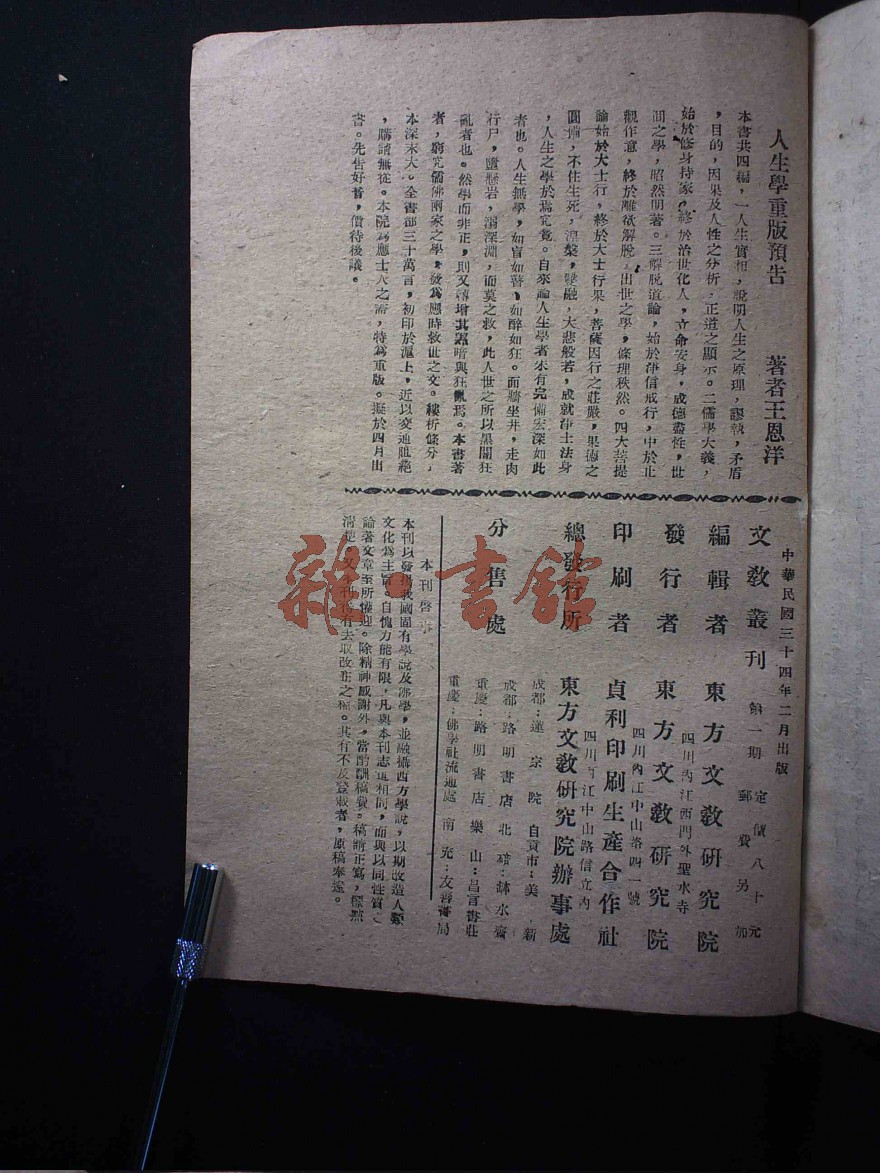 人生學重版預告　著者王恩洋
本書共四編，一人生實相，說明人生之原理，謬執，矛盾
，目的，因果及人性之分析，正道之顯示。二儒學大義，
始於修身持家，終於治世化人，立命安身，成德盡性，世
間之學，昭然明著。三解脫道論，始於淨信戒行，中於止
觀作意，終於離欲解脫，出世之學，條理秩然。四大菩提
論始於大士行，終於大士行果，菩薩因行之莊嚴，果德之
圓滿，不住生死，涅槃，雙融，大悲般若，成就淨土法身
，人生之學於焉究竟。自來論人生學者未有完備宏深如此
者也。人生無學，如盲如瞽，如醉如狂。面牆坐井，走肉
行尸，墮懸岩，溺深淵，而莫之救，此人世之所以黑闇狂
亂者也。然學而非正，則又轉增其闇與狂亂焉。本書著
者，窮究儒佛兩家之學，發為應時救世之文。縷析條分，
本深末大。全書都三十萬言，初印於滬上，近以交通阻絕
，購請無從。本院為應士人之需，特為重版。擬於四月出
書。先告好音，價待後議。
中華民國三十四年二月出版
文教叢刊　第一期　定價八十元　郵費另加
編輯者　東方文教研究院
四川內江西門外聖水寺
發行者　東方文教研究院
四川內江中山路四一號
印刷者　貞利印刷生產合作社
四川內江中山路信立內
總發行所　東方文教研究院辦事處
分售處
成都：蓮宗院　自貢市：美新
成都：路明書店　北碚：缽水齋
重慶：路明書店　樂山：昌言書莊
重慶：佛學社流通處　南充：友善書局
本刊啓事
本刊以發揚我國固有學說及佛學，並融攝西方學說，以期改造人類
文化為主旨。自愧力能有限，凡與本刊志趣相同，而與以同性質之
論著文章至所懽迎。除精神感謝外，當酌酬稿費。稿請正寫，標點
清楚。又本刊得有去取改正之權。其有不及登載者，原稿奉還。
雜·書館